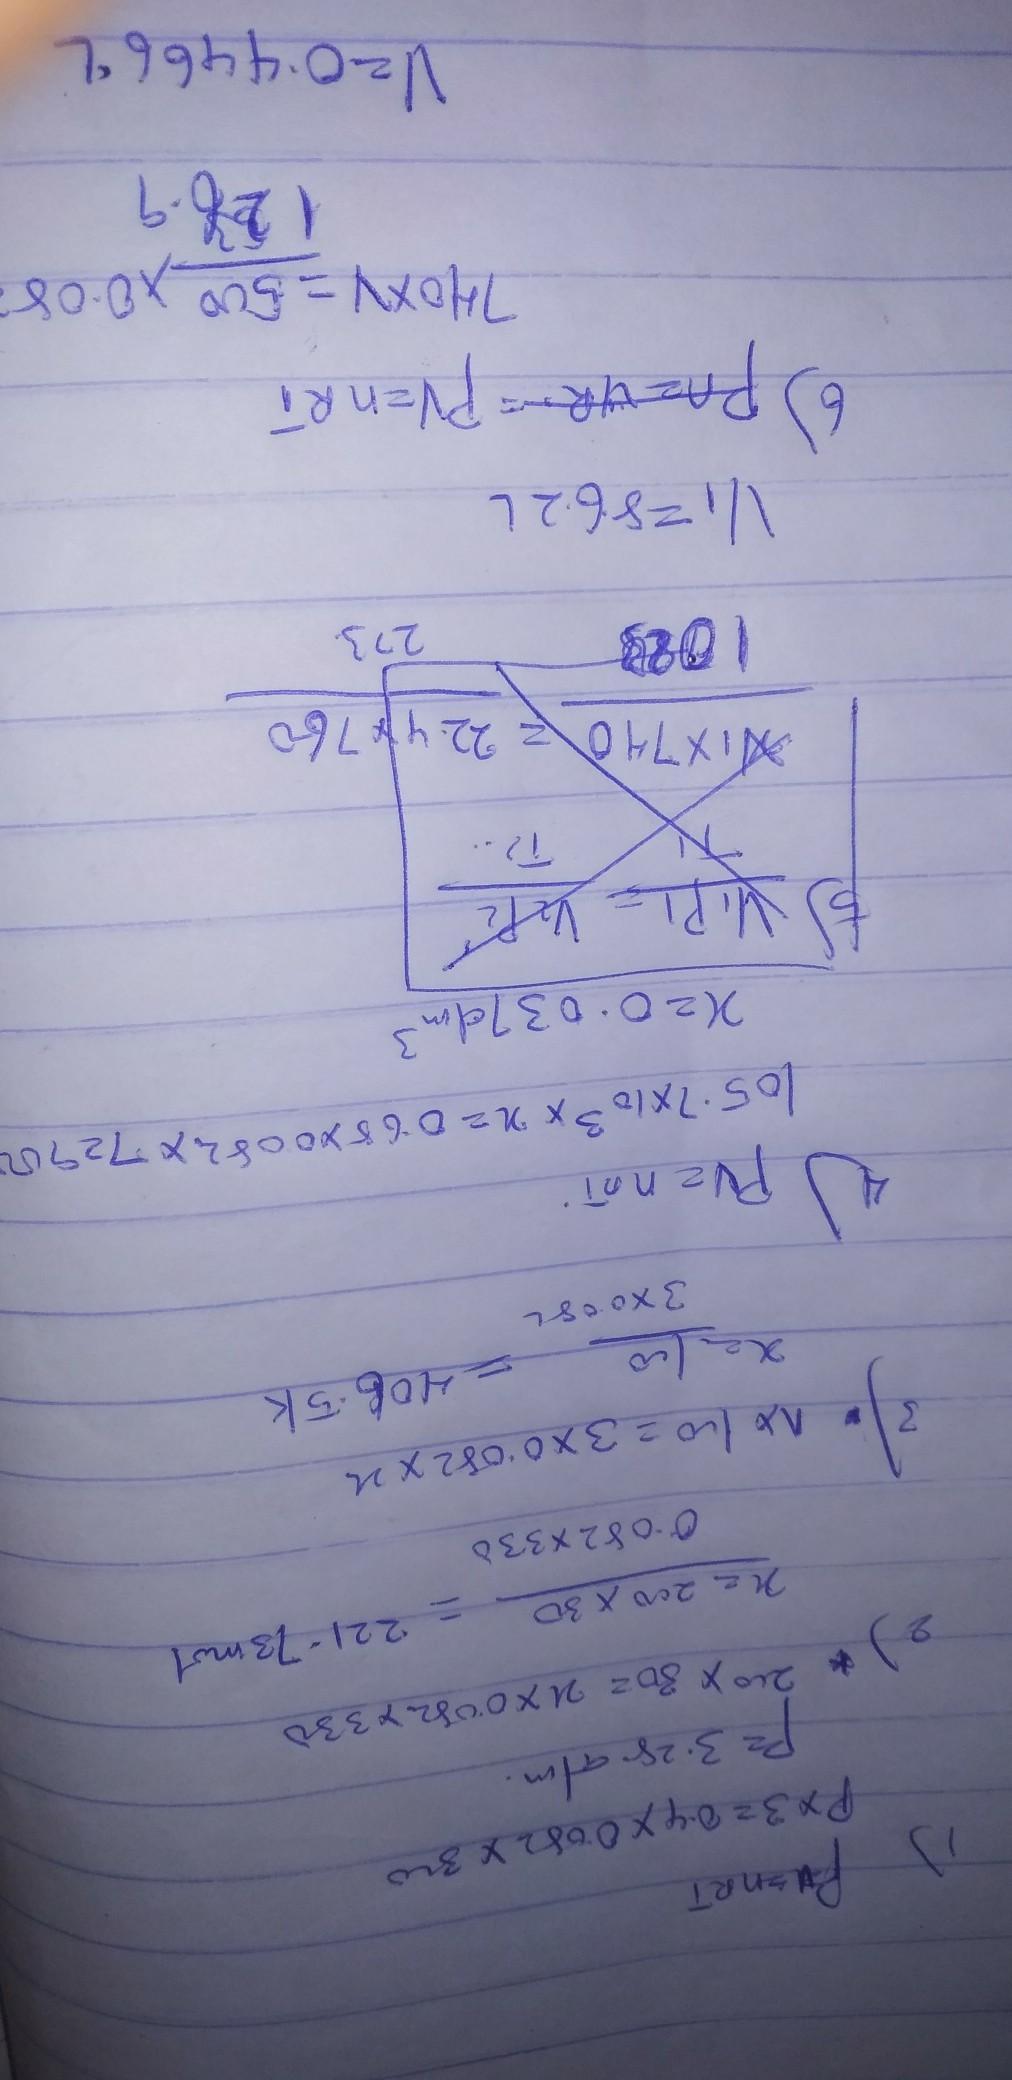 1) PV=nRT
P×3=0.4×0.082×300
P=3.28 atm.
2) 200×30=x×0.082×330
x=200×30 / 0.082×330 = 221.73mol
3) 1×100=3×0.082×x
x=100 / 3×0.082 = 406.5K
4) PV=nRT
105.7×10³×x=0.65×0.082×729
x=0.037dm³
5) V1P1 / T1 = V2P2 / T2
V1×740 / = 22.4×760 / 273
V1=86.2L
6) PV=nRT
740×V=500 / ×0.08
V=0.4466L